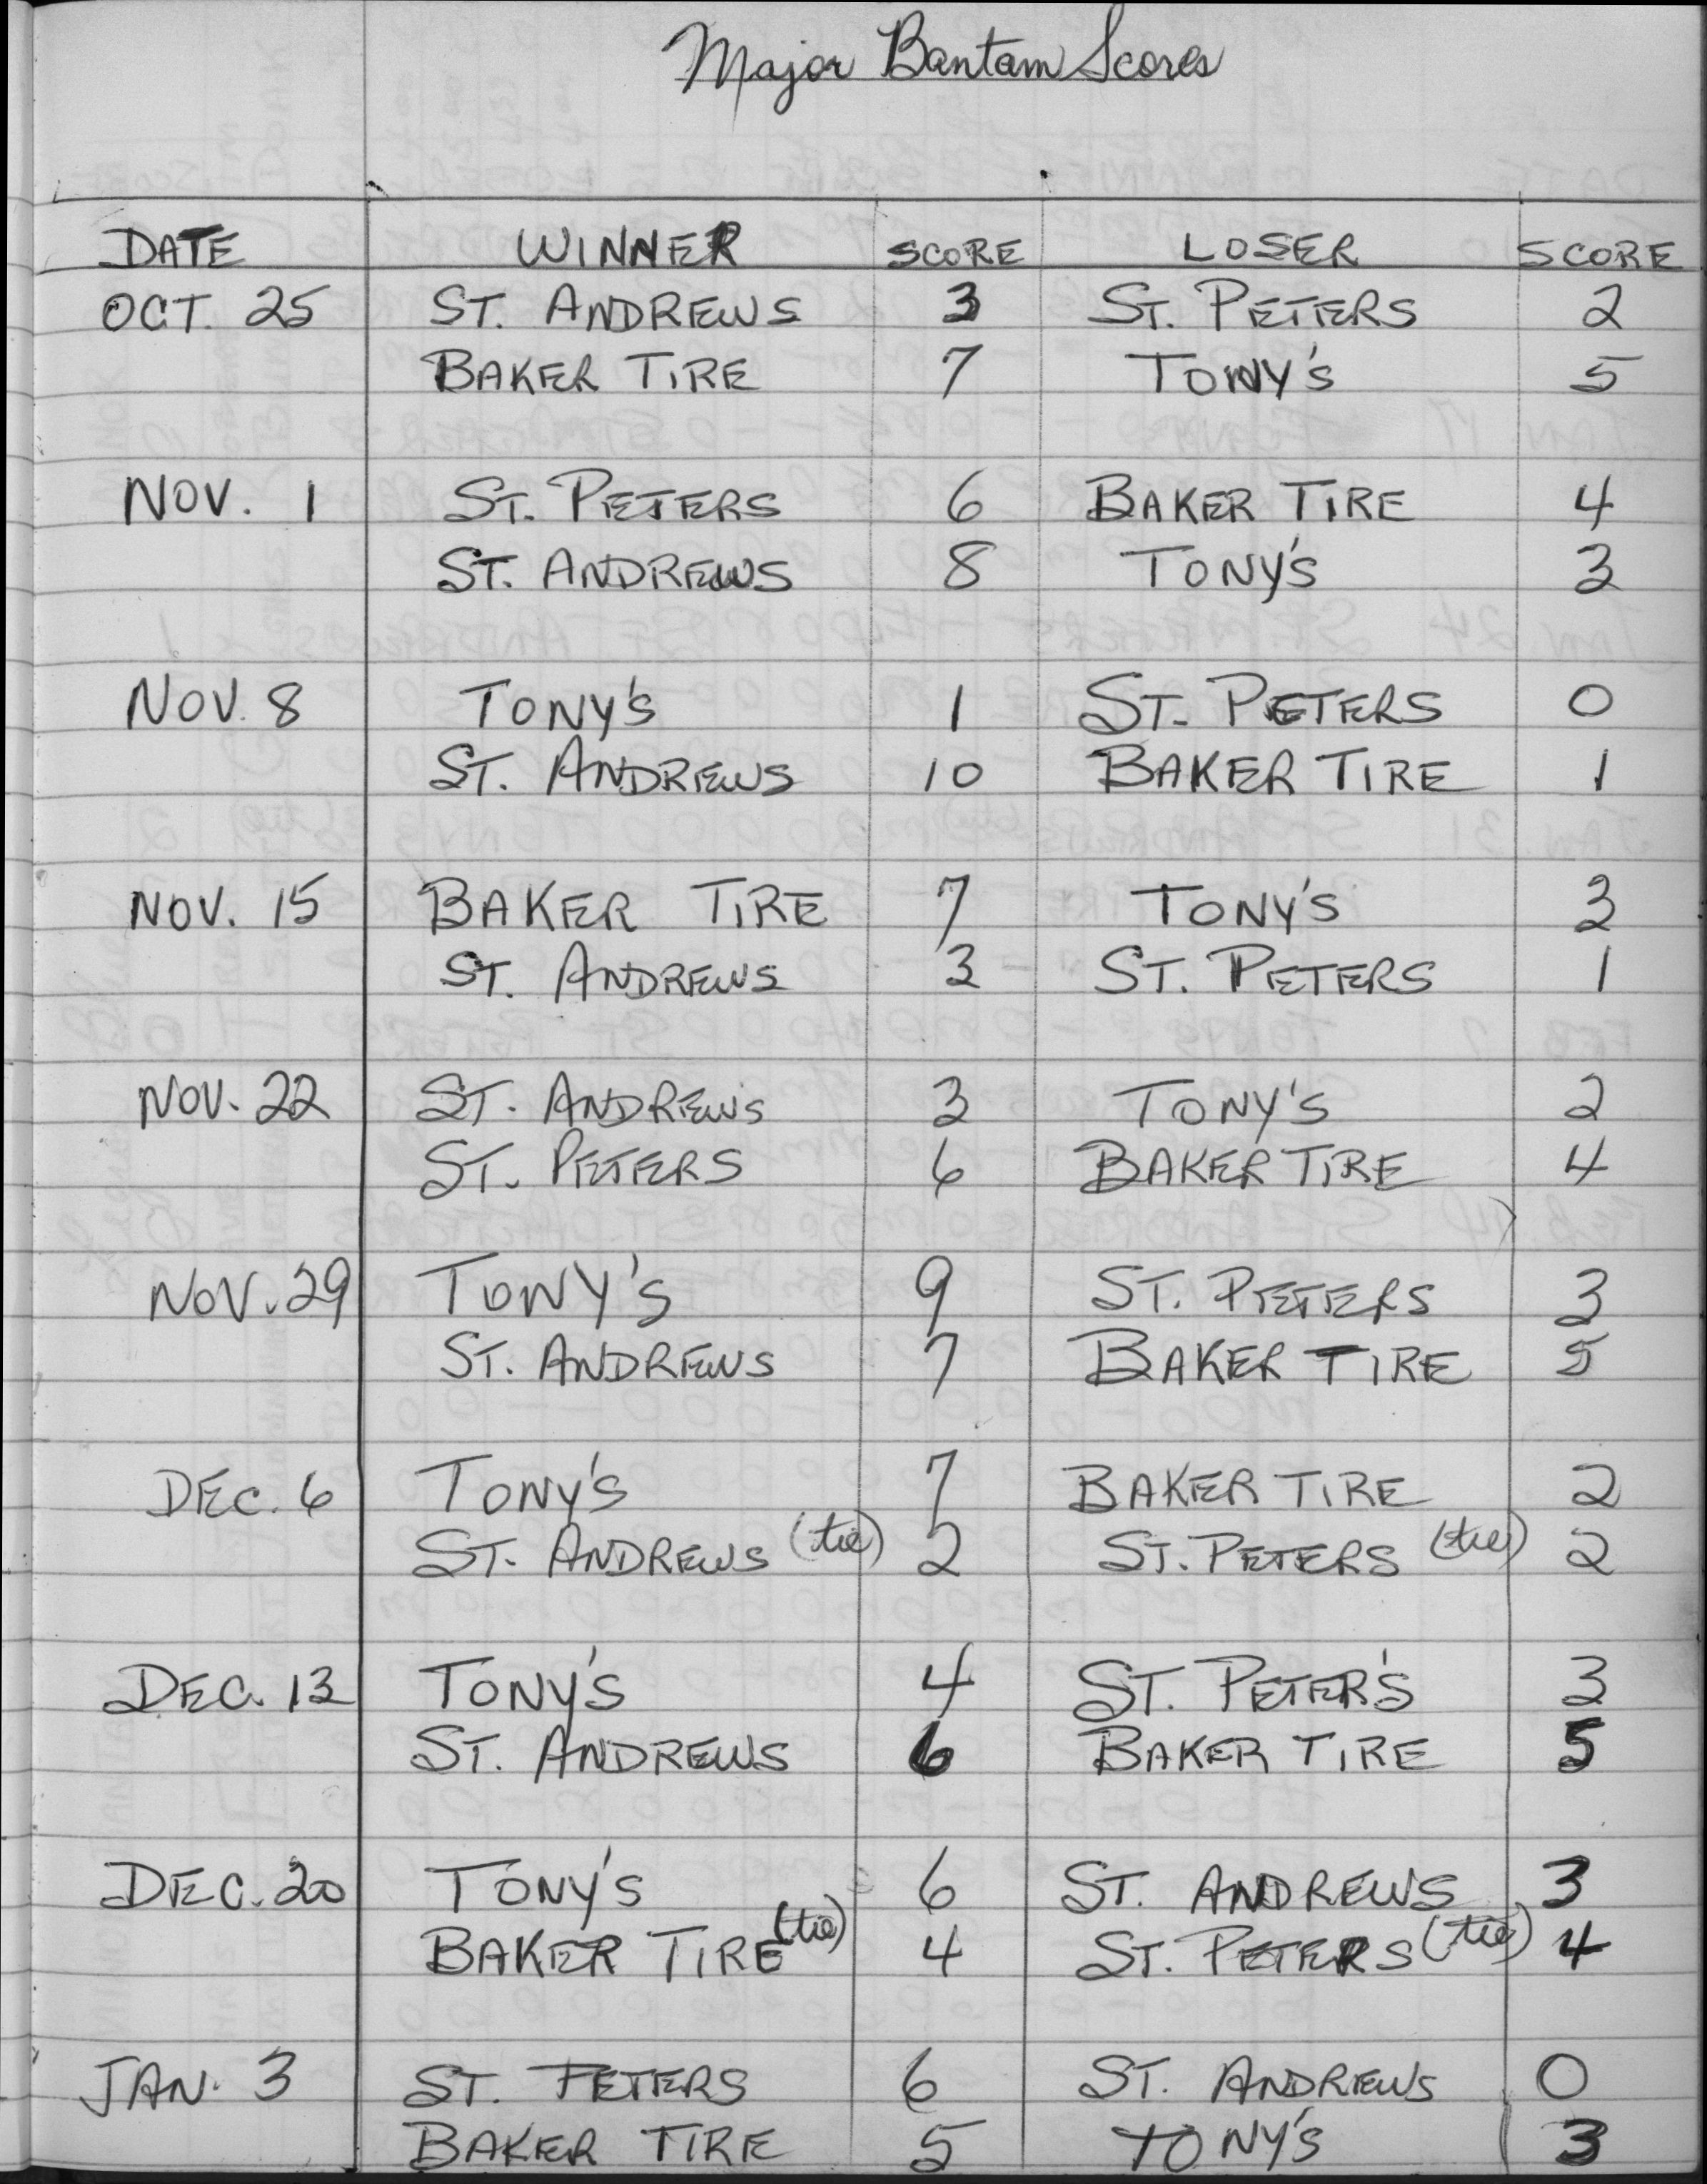 Major Bantam Scores
DATE WINNER SCORE LOSER SCORE
OCT. 25 ST. ANDREWS 3 ST. PETERS 2
BAKER TIRE 7 TONY'S 5
NOV. 1 ST. PETERS 6 BAKER TIRE 4
ST. ANDREWS 8 TONY'S 3
NOV. 8 TONY'S 1 ST. PETERS 0
ST. ANDREWS 10 BAKER TIRE 1
NOV. 15 BAKER TIRE 7 TONY'S 3
ST. ANDREWS 3 ST. PETERS 1
NOV. 22 ST. ANDREWS 3 TONY'S 2
ST. PETERS 6 BAKER TIRE 4
NOV. 29 TONY'S 9 ST. PETERS 3
ST. ANDREWS 7 BAKER TIRE 5
DEC. 6 TONY'S 7 BAKER TIRE 2
ST. ANDREWS (tie) 2 ST. PETERS (tie) 2
DEC. 13 TONY'S 4 ST. PETER'S 3
ST. ANDREWS 6 BAKER TIRE 5
DEC. 20 TONY'S 6 ST. ANDREWS 3
BAKER TIRE (tie) 4 ST. PETERS (tie) 4
JAN. 3 ST. PETERS 6 ST. ANDREWS 0
BAKER TIRE 5 TONY'S 3